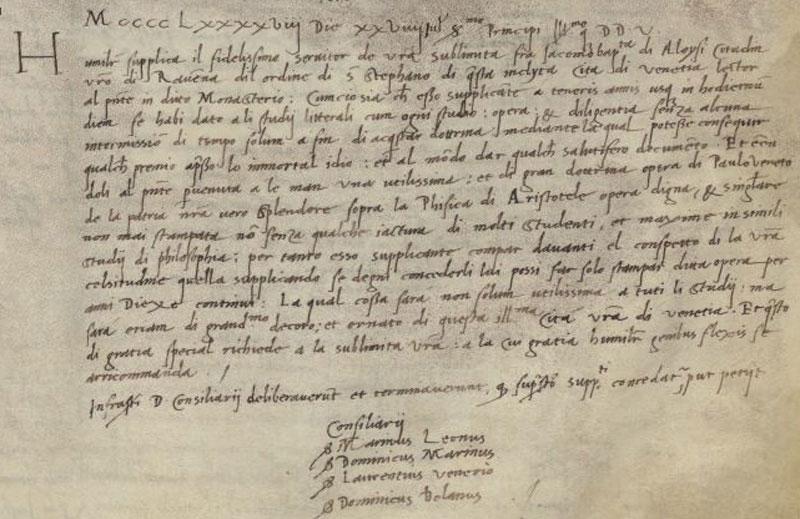 Mcccc Lxxxxviij Die xxviiij Ser.mo Principi Ill.mo q D D V
Humilr supplica il fidelissimo servitor de vra sublimita fra Jacomobap.ta di Aloysi Citadin
vro di Ravena dil ordine di S Stephano di qsta inclyta Cita di venetia lector
al pnte in dicto Monasterio: Cumciosia ch esso supplicate a teneris annis usq in hodiernũ
diem se habi dato a li studij litterali cum ogni studio: opera: & diligentia senza alcuna
intermissiõ di tempo solum a fin di acqstar dotrina mediante la qual potesse conseqir
qualch premio apsso lo immortal idio: et al mõdo dar qualch salutifero documẽto. Et eẽn
doli al pnte pvenuta a le man una utilissima: et di gran dotrina opera di Paulo veneto
de la patria nra vero splendore sopra la Phisica di Aristotele opera digna, & singlare
non mai stampata nõ senza qualche iactura di molti studenti, et maxime in simili
studij di philosophia; per tanto esso supplicante compar davanti el conspetto di la vra
celsitudine quella supplicando se degni concederli lui possi far solo stampar dicta opera per
anni Diexe continui: La qual cossa sara non solum utilissima a tuti li studij: ma
sara etiam di grand.mo decoro: et ornato di questa ill.ma Cita vra di venetia. Et qsto
di gratia special richiede a la sublimita vra: a la cui gratia humilr genibus flexis se
arricommanda.
Infrasti D Consiliarij deliberaverũt et terminaverunt, q supsto supp.ti concedat put petijt
Consiliarij
Marinus Leonus
Dominicus Marinus
Laurentius venerio
Dominicus Bolanus